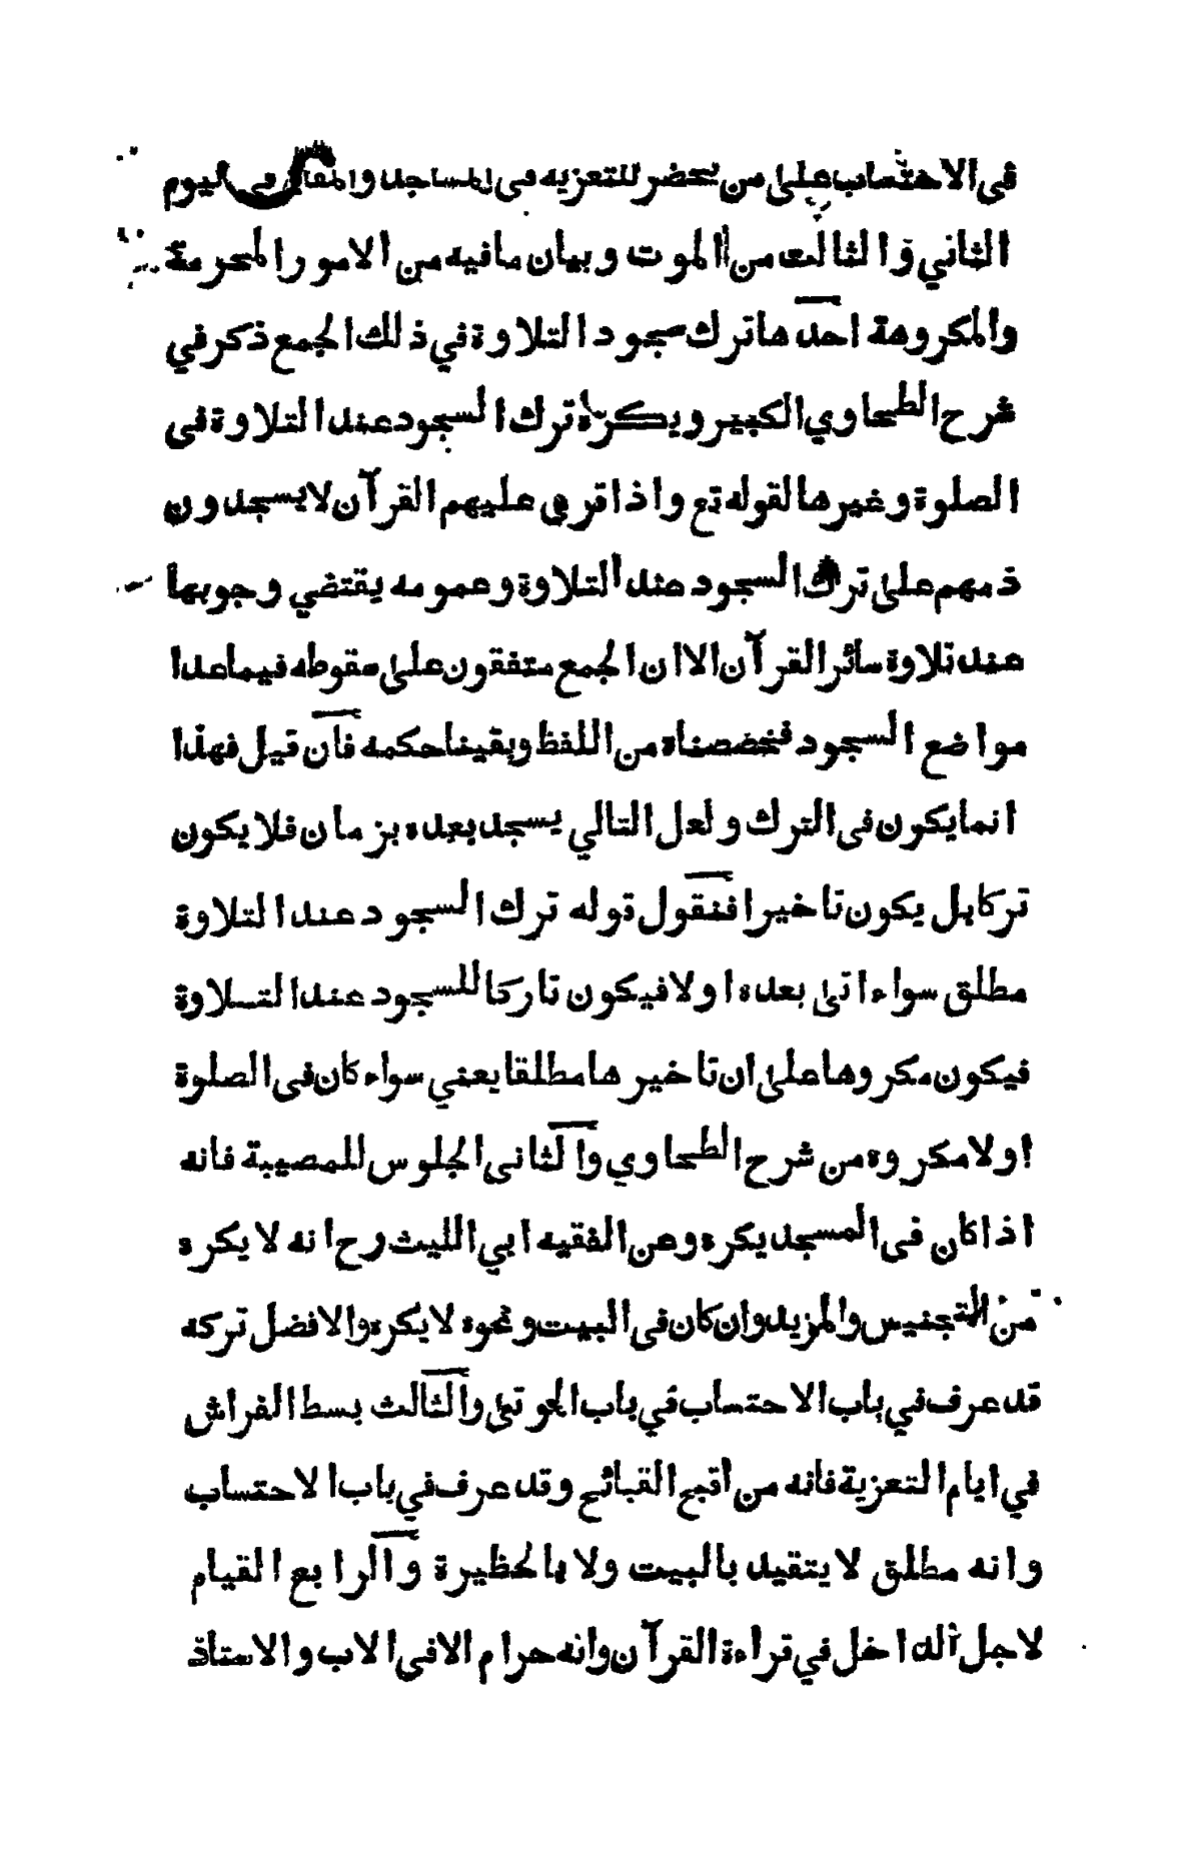 فى الاحتساب على من يحضر للتعزيه فى المساجد والمقابر فى اليوم
الثاني والثالث من الموت وبيان مافيه من الامور المحرمة
والمكروهة احدها ترك سجود التلاوة في ذلك الجمع ذكر في
شرح الطحاوي الكبير ويكره ترك السجود عند التلاوة فى
الصلوة وغيرها لقوله تع واذا قرئ عليهم القرآن لا يسجدون
ذمهم على ترك السجود عند التلاوة وعمومه يقتضي وجوبها
عند تلاوة سائر القرآن الا ان الجمع متفقون على سقوطه فيما عدا
مواضع السجود فخصصناه من اللفظ وبقينا حكمه فان قيل فهذا
انما يكون فى الترك ولعل التالي يسجد بعده بزمان فلا يكون
تركا بل يكون تاخيرا فنقول قوله ترك السجود عند التلاوة
مطلق سواء اتى بعده اولا فيكون تاركا للسجود عند التلاوة
فيكون مكروها على ان تاخيرها مطلقا يعني سواء كان فى الصلوة
اولا مكروه من شرح الطحاوي والثانى الجلوس للمصيبة فانه
اذا كان فى المسجد يكره وعن الفقيه ابي الليث رح انه لا يكره
من التجنيس والمزيد وان كان فى البيت ونحوه لا يكره والافضل تركه
قد عرف في باب الاحتساب في باب الموتى والثالث بسط الفراش
في ايام التعزية فانه من اقبح القبائح وقد عرف في باب الاحتساب
وانه مطلق لا يتقيد بالبيت ولا بالحظيرة والرابع القيام
لاجل الداخل في قراءة القرآن وانه حرام الا فى الاب والاستاذ